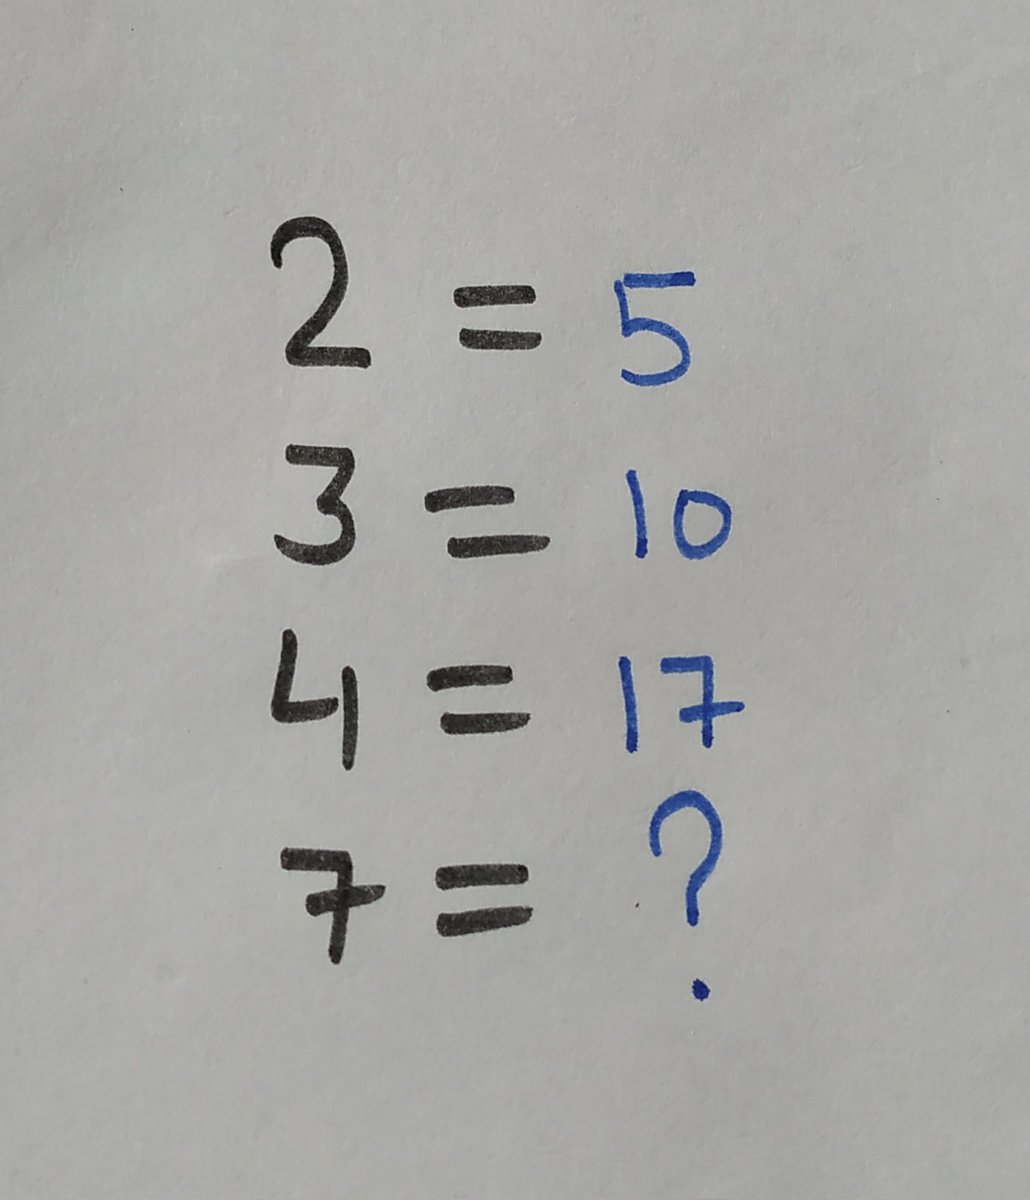 2 = 5
3 = 10
4 = 17
7 = ?